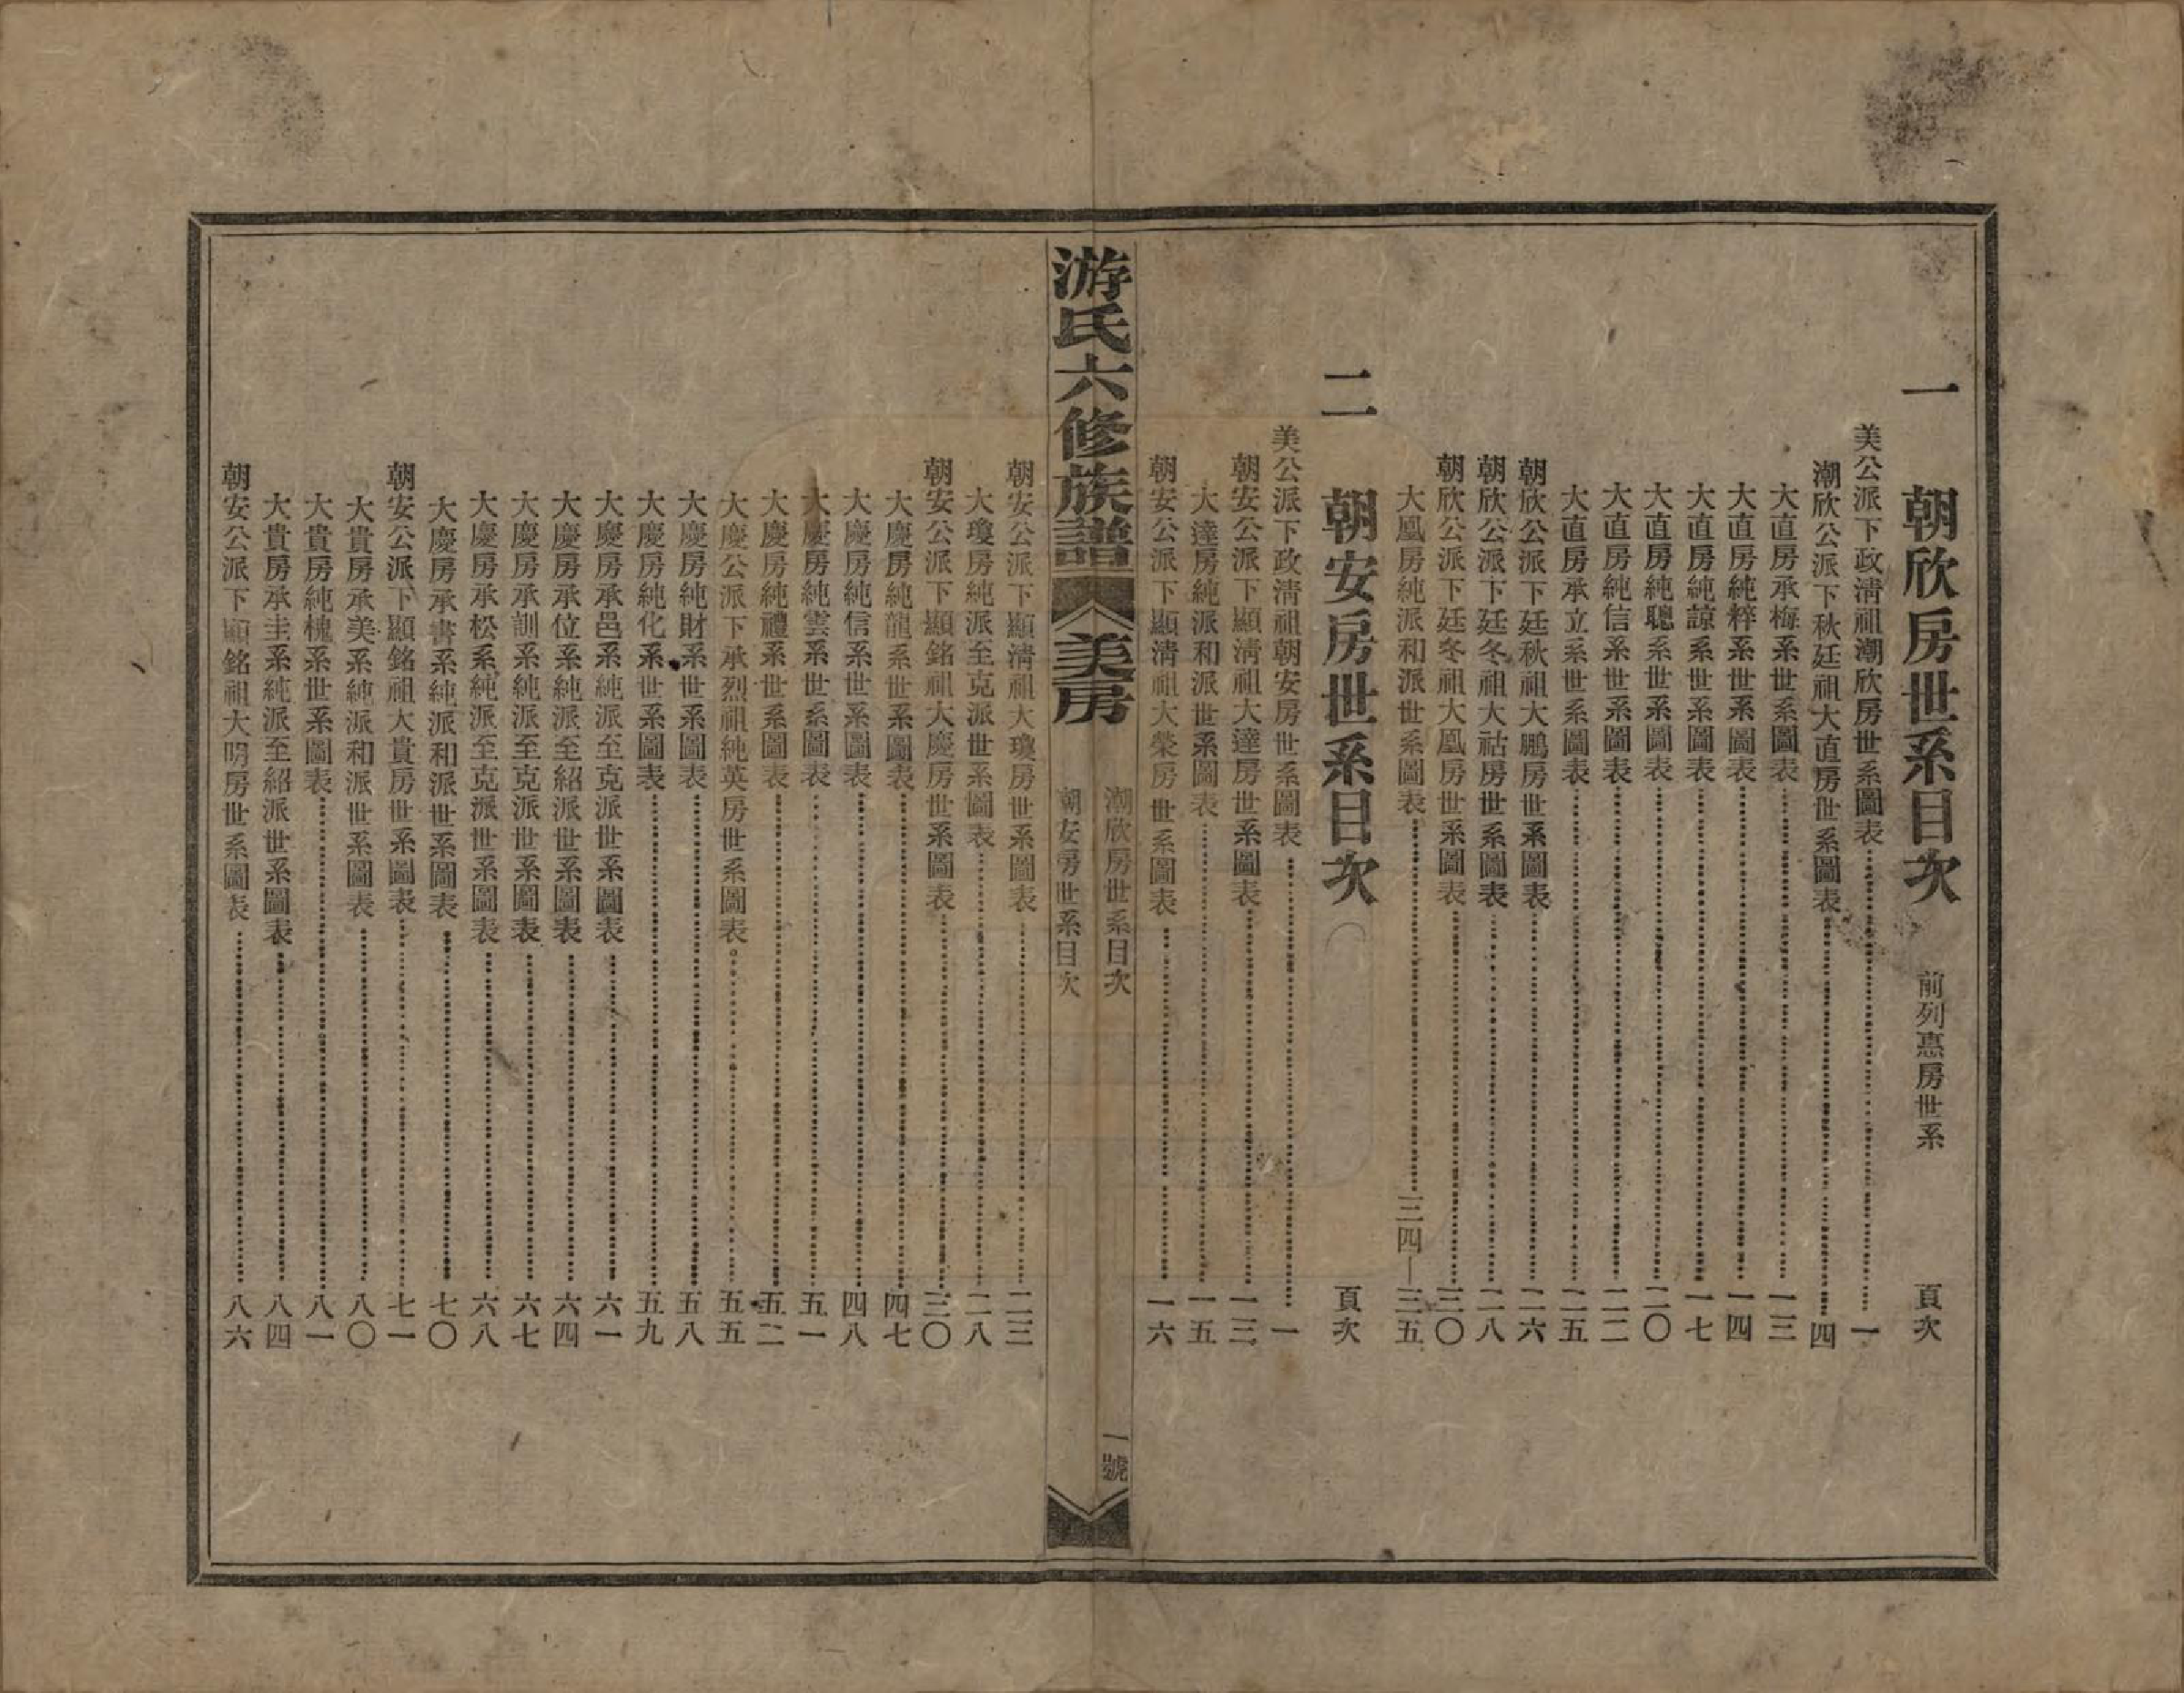 一　朝欣房世系目次　前列惪房世系　頁次
美公派下政淸祖潮欣房世系圖表……一
潮欣公派下秋廷祖大直房世系圖表……四
大直房承梅系世系圖表……一三
大直房純粹系世系圖表……一四
大直房純諒系世系圖表……一七
大直房純聰系世系圖表……二〇
大直房純信系世系圖表……二二
大直房承立系世系圖表……二五
朝欣公派下廷秋祖大鵬房世系圖表……二六
朝欣公派下廷冬祖大祜房世系圖表……二八
朝欣公派下廷冬祖大凰房世系圖表……三〇
大凰房純派和派世系圖表……三四—三五
二　朝安房世系目次　頁次
美公派下政淸祖朝安房世系圖表……一
朝安公派下顯淸祖大達房世系圖表……一三
大達房純派和派世系圖表……一五
朝安公派下顯淸祖大榮房世系圖表……一六
游氏六修族譜　美房　潮欣房世系目次　潮安房世系目次　一號
朝安公派下顯淸祖大瓊房世系圖表……二三
大瓊房純派至克派世系圖表……二八
朝安公派下顯銘祖大慶房世系圖表……三〇
大慶房純龍系世系圖表……四七
大慶房純信系世系圖表……四八
大慶房純雲系世系圖表……五一
大慶房純禮系世系圖表……五二
大慶公派下承烈祖純英房世系圖表……五五
大慶房純財系世系圖表……五八
大慶房純化系世系圖表……五九
大慶房承邑系純派至克派世系圖表……六一
大慶房承位系純派至紹派世系圖表……六四
大慶房承訓系純派至克派世系圖表……六七
大慶房承松系純派至克派世系圖表……六八
大慶房承書系純派和派世系圖表……七〇
朝安公派下顯銘祖大貴房世系圖表……七一
大貴房承美系純派和派世系圖表……八〇
大貴房純槐系世系圖表……八一
大貴房承圭系純派至紹派世系圖表……八四
朝安公派下顯銘祖大明房世系圖表……八六